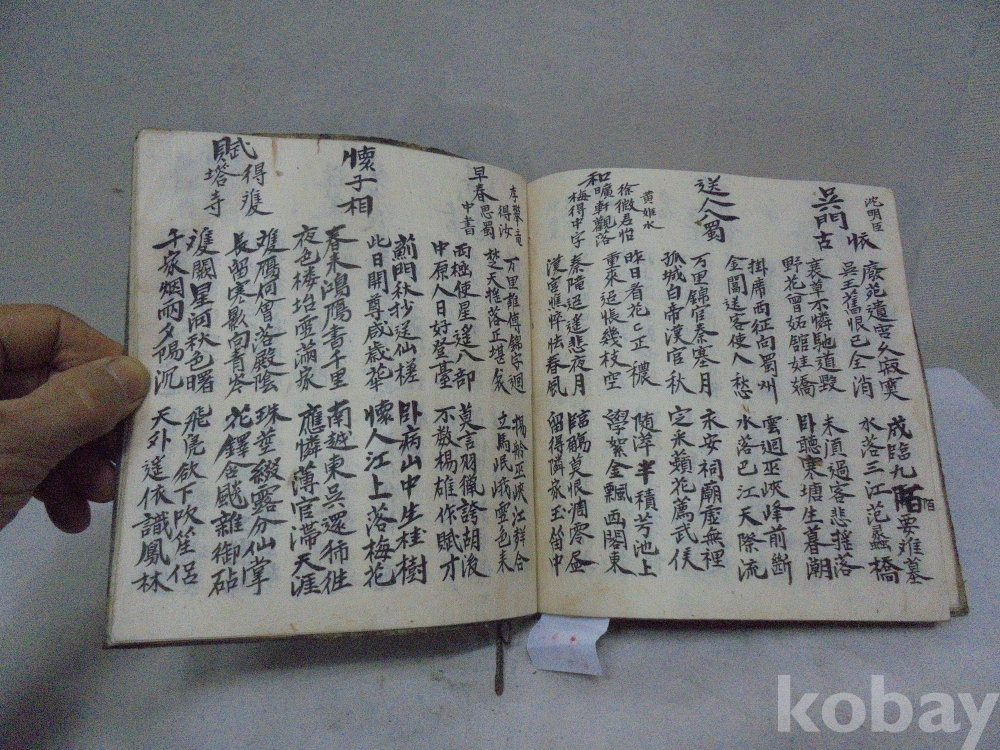 沈明臣
吳門
古
廢苑遺宮久寂寞 成臨九陌要難墓
陌
吳王舊恨已全消 水落三江范蠡橋
裏草不憐馳道毀 未須過客悲搖落
野花曾妬館娃橋 卧聽寒塘生暮潮
送人入蜀
掛席西征向蜀州 雲迴巫峽峰前斷
金閶送客使人愁 水落巴江天際流
万里錦官秦塞月 永安祠廟虛無裡
孤城白帝漢宮秋 定采蘋花薦武侯
黃姬水
和徐微君怡
曠軒觀落
梅得中字
昨日看花〻正穠 随萍半積芳池上
重來過悵幾枝空 學絮全飄画閣東
秦隴迢遙悲夜月 臨觴莫恨凋零盡
漢宮憔悴怯春風 留得憐家玉笛中
李攀竜
早春得汝
思蜀
中書
万里誰傳錦字迴 揚舲巫峽江群合
楚天搖落正堪哀 立馬岷峨雪色來
兩極使星遙八部 莫言羽獵誇胡沒
中原人日好登臺 不敢楊雄作賦才
懷子相
薊門秋杪送仙槎 卧病山中生桂樹
此日開尊感歲華 懷人江上落梅花
春來鴻鴈書千里 南越東吳還
夜色楼台雪滿家 應憐薄宦滯天涯
賦得雙
塔寺
雙鴈何曾落殿陰 珠莖綴露分仙掌
長留寒影向青岑 花鐸含飈雜御砧
雙闕星河秋色曙 飛鳧欲下吹笙侶
千家烟雨夕陽沉 天外遙依識鳳林
kobay